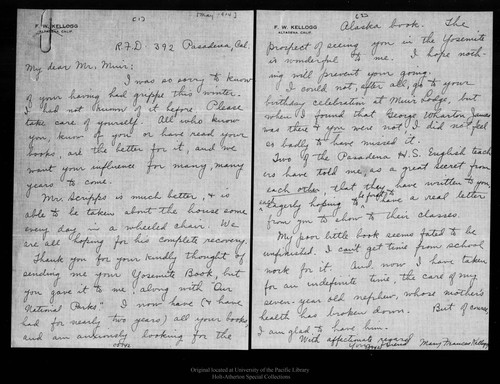 F. W. KELLOGG
ALTADENA, CALIF.
(1)
[May 1914]
R.F.D. 392 Pasadena, Cal.
My dear Mr. Muir:
I was so sorry to know
of your having had grippe this winter.
I had not known of it before. Please
take care of yourself. All who know
you, know of you or have read your
books, are the better for it, and we
want your influence for many, many
years to come.
Mr. Scripps is much better, & is
able to be taken about the house some
every day in a wheeled chair. We
are all hoping for his complete recovery.
Thank you for your kindly thought of
sending me your Yosemite Book, but
you gave it to me along with "Our
National Parks". I now have (& have
had for nearly two years) all your books,
and am anxiously looking for the
F. W. KELLOGG
ALTADENA, CALIF.
(2)
Alaska book. The
prospect of seeing you in the Yosemite
is wonderful to me. I hope noth-
ing will prevent your going.
I could not, after all, go to your
birthday celebration at Muir Lodge, but
when I found that George Wharton James
was there & you were not I did not feel
so badly to have missed it.
Two of the Pasadena H.S. English teach-
ers have told me, as a great secret from
each other, that they have written to you
eagerly hoping to have a real letter
from you to show to their classes.
My poor little book seems fated to be
unfinished. I can't get time from school
work for it. And now I have taken
for an indefinite time, the care of my
seven-year old nephew, whose mother's
health has broken down. But of course,
I am glad to have him.
With affectionate regard
Your friend
Mary Frances Kellogg
Original located at University of the Pacific Library
Holt-Atherton Special Collections